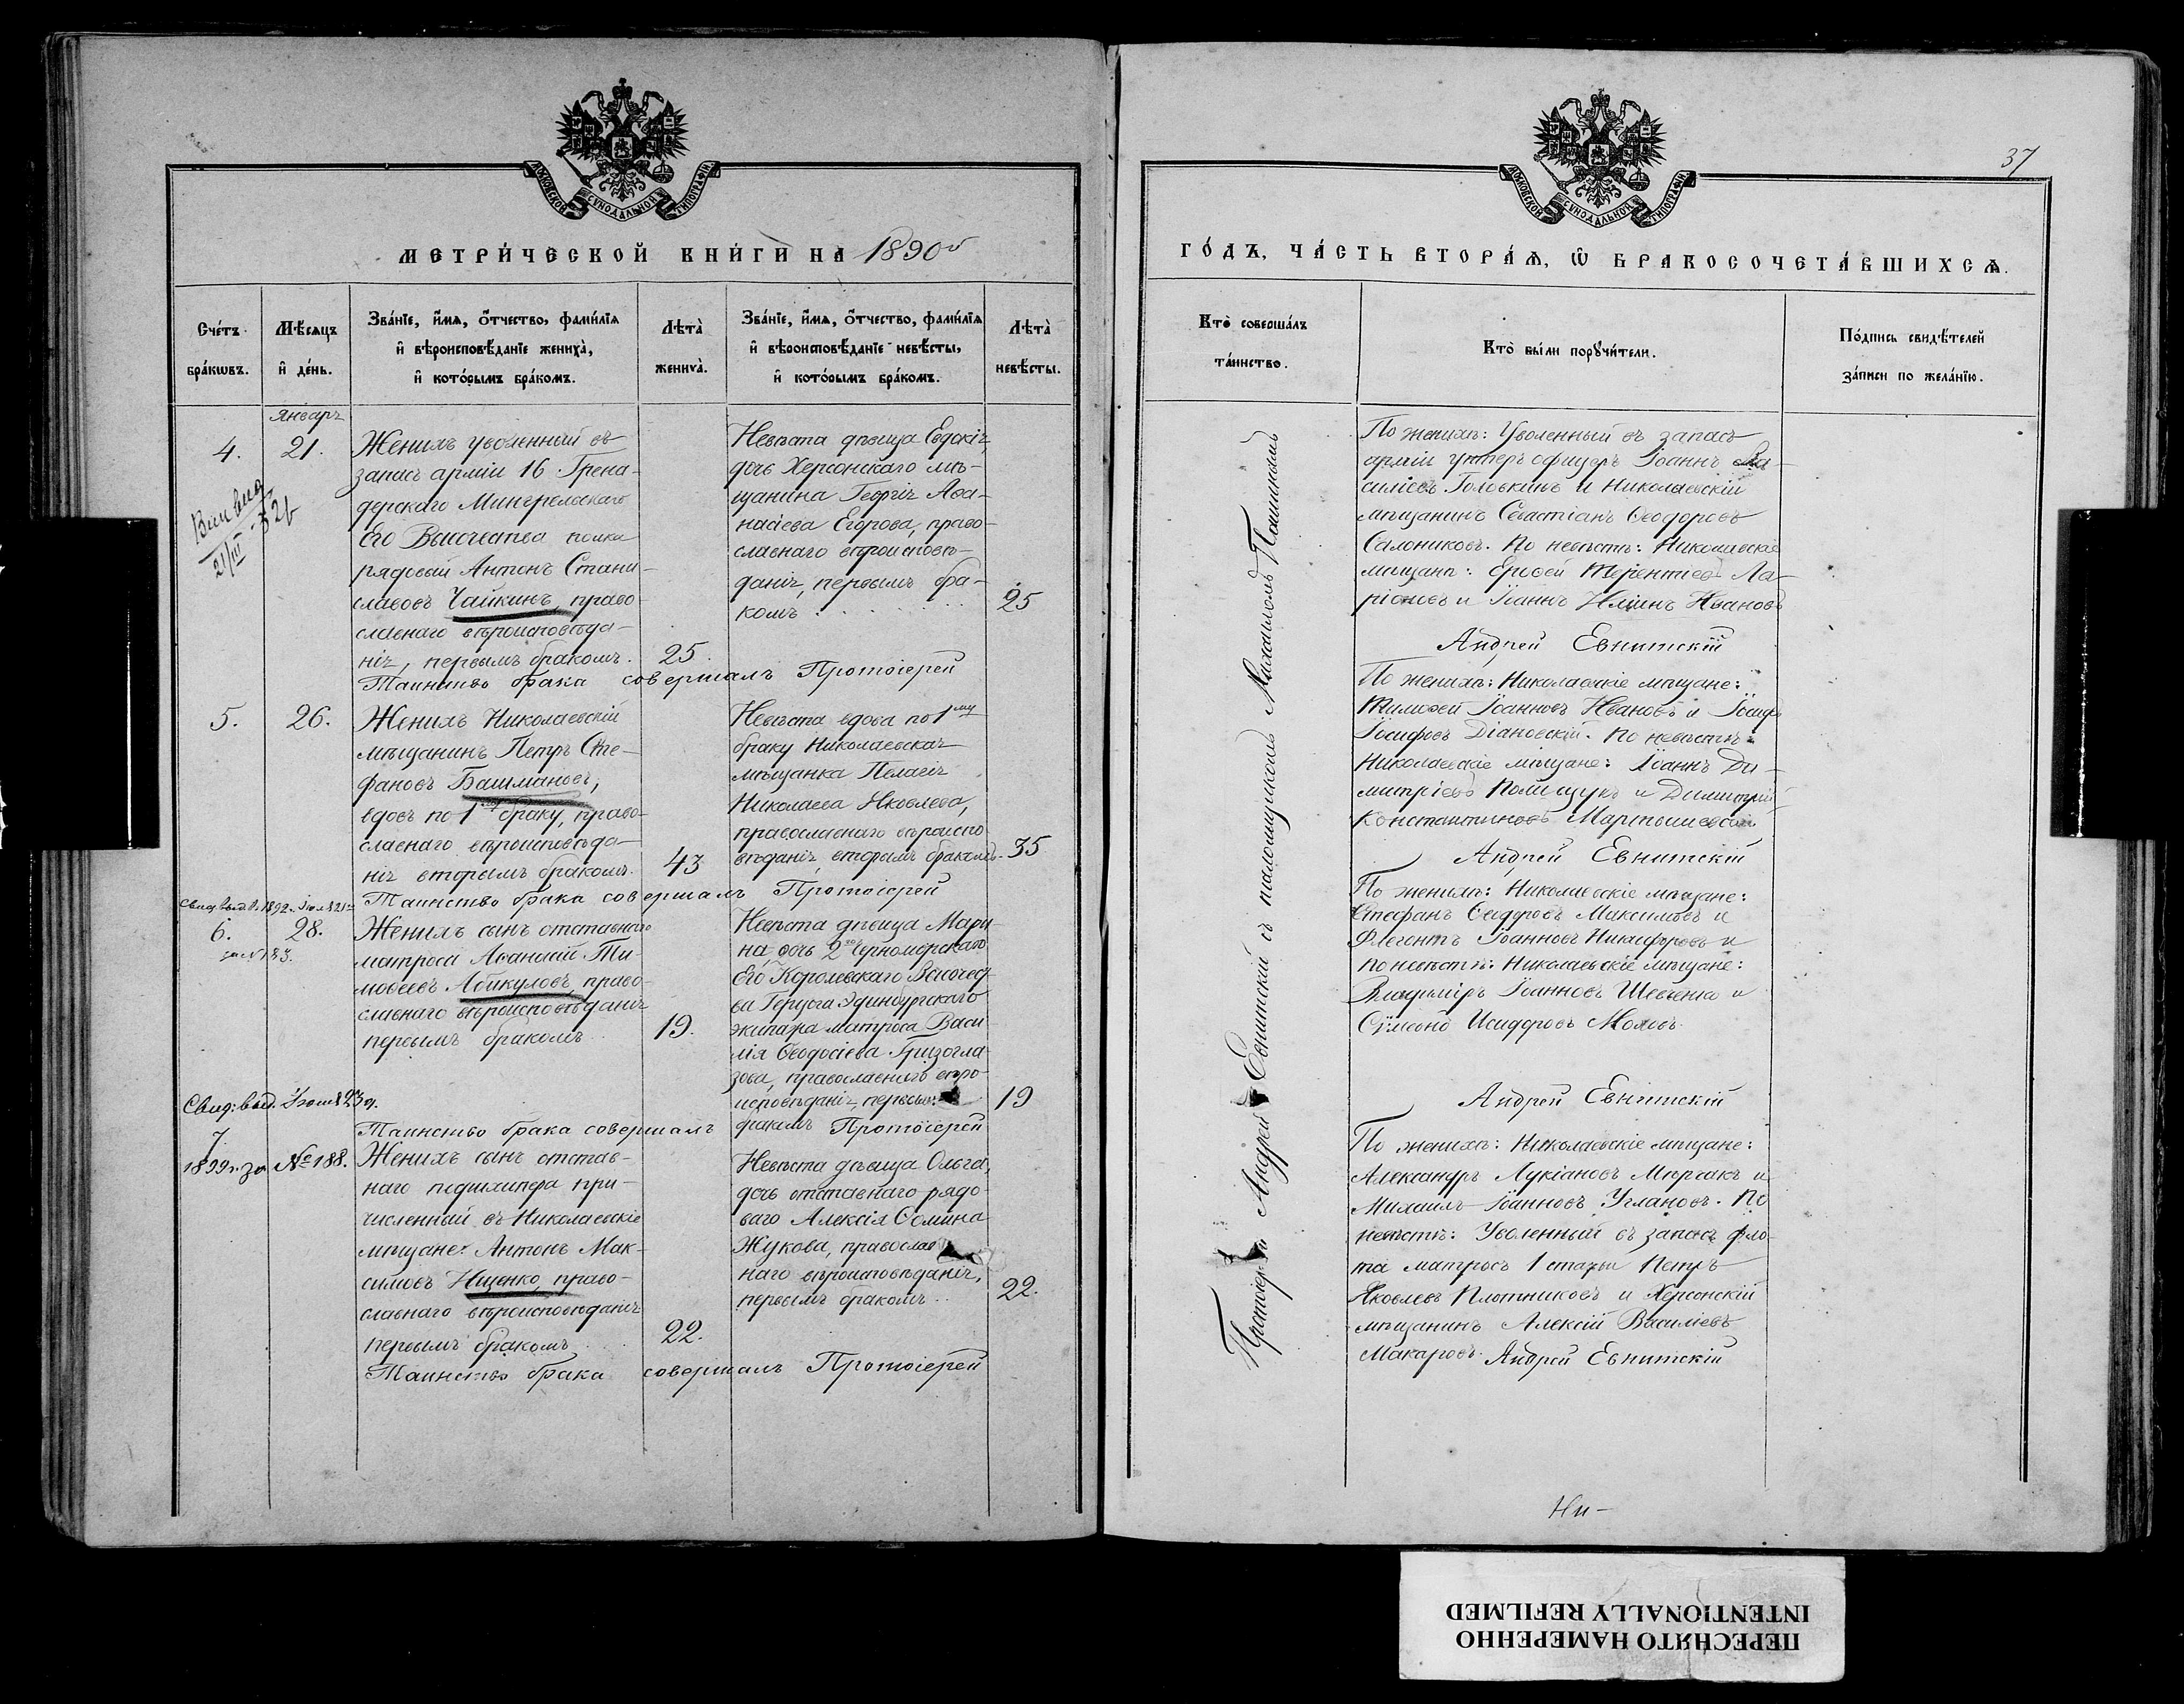 МОСКОВСКОЙ СѴНОДАЛЬНОЙ ТИПОГРАФІИ
МЕТРИ́ЧЕСКОЙ КНИ́ГИ НА 1890й
Сче́тъ бра́кѡвъ.
Мѣ́сяцъ и҆ де́нь.
Зва́нїе, и҆́мѧ, ѻ҆́тчество, фами́лїѧ
и҆ вѣроисповѣ́данїе жениха̀,
и҆ кото́рымъ бра́комъ.
Лѣта̀ жениха̀.
Зва́нїе, и҆́мѧ, ѻ҆́тчество, фами́лїѧ
и҆ вѣроисповѣ́данїе невѣ́сты,
и҆ кото́рымъ бра́комъ.
Лѣта̀ невѣ́сты.
Январь
4.
21.
21/III 32
Женихъ уволенный въ
запасъ арміи 16 Грена-
дерскаго Мингрельскаго
Его Высочества полка
рядовый Антонъ Стани-
славовъ Чайкинъ, право-
славнаго вѣроисповѣда-
нія, первымъ бракомъ.
25.
Невѣста дѣвица Евдокія,
дочь Херсонскаго мѣ-
щанина Георгія Аѳа-
насіева Егорова, право-
славнаго вѣроисповѣ-
данія, первымъ бра-
комъ
25
Таинство брака совершалъ Протоіерей
5.
26.
Женихъ Николаевскій
мѣщанинъ Петръ Сте-
фановъ Башмановъ,
вдовъ по 1му браку, право-
славнаго вѣроисповѣда-
нія вторымъ бракомъ.
43
Невѣста вдова по 1му
браку Николаевская
мѣщанка Пелагія
Николаева Яковлева,
православнаго вѣроиспо-
вѣданія, вторымъ бракомъ.
35
Таинство брака совершалъ Протоіерей
Свид. выд. 1892 г. Іюля 21
6.
за № 183.
28.
Женихъ сынъ отставнаго
матроса Аѳанасій Ти-
моѳеевъ Абикуловъ, право-
славнаго вѣроисповѣданія
первымъ бракомъ
19.
Невѣста дѣвица Мари-
на, дочь 2го Черноморскаго
Его Королевскаго Высочест-
ва Герцога Эдинбургскаго
экипажа матроса Васи-
лія Ѳеодосіева Гризогла-
зова, православнаго вѣро-
исповѣданія, первымъ
бракомъ
19
Таинство брака совершалъ Протоіерей
Свид: выд. Іюля 23 д.
7.
1899 г. за № 188.
Женихъ сынъ отстав-
наго подшкипера при-
численный въ Николаевскіе
мѣщане Антонъ Мак-
симовъ Ищенко, право-
славнаго вѣроисповѣданія
первымъ бракомъ
22.
Невѣста дѣвица Ольга,
дочь отставнаго рядо-
ваго Алексія Ѳомина
Жукова, православ-
наго вѣроисповѣданія,
первымъ бракомъ
22.
Таинство брака совершалъ Протоіерей
37
МОСКОВСКОЙ СѴНОДАЛЬНОЙ ТИПОГРАФІИ
ГО́ДЪ, ЧА́СТЬ ВТОРА́Ѧ, Ѡ҆ БРАКОСОЧЕТА́ВШИХСѦ.
Кто̀ соверша́лъ
та́инство.
Кто̀ бы́ли порꙋчи́тели.
По́дпись свидѣ́телей
за́писи по жела́нїю.
Протоіерей Андрей Евнитскій съ псаломщикомъ Михаиломъ
По женихѣ: Уволенный въ запасъ
арміи унтеръ офицеръ Іоаннъ Ва-
силіевъ Головкинъ и Николаевскій
мѣщанинъ Севастіанъ Ѳеодоровъ
Салониковъ. По невѣстѣ: Николаевскіе
мѣщане: Ерофей Терентіевъ Ла-
ріоновъ и Іоаннъ Иліинъ Ивановъ
Андрей Евнитскій
По женихѣ: Николаевскіе мѣщане:
Тимоѳей Іоанновъ Ивановъ и Іосифъ
Іосифовъ Діановскій. По невѣстѣ:
Николаевскіе мѣщане: Іоаннъ Ди-
митріевъ Полищукъ и Димитрій
Константиновъ Мартышевскій
Андрей Евнитскій
По женихѣ: Николаевскіе мѣщане:
Стефанъ Сидоровъ Максимовъ и
Флегонтъ Іоанновъ Никифоровъ и
по невѣстѣ: Николаевскіе мѣщане:
Владиміръ Іоанновъ Шевченко и
Сѵмеонъ Исидоровъ Моловъ.
Андрей Евнитскій
По женихѣ: Николаевскіе мѣщане:
Александръ Лукіановъ Мѣрзакъ и
Михаилъ Іоанновъ Углановъ. По
невѣстѣ: Уволенный въ запасъ фло-
та матросъ 1 статьи Петръ
Яковлевъ Плотниковъ и Херсонскій
мѣщанинъ Алексій Василіевъ
Макаровъ. Андрей Евнитскій
Ни-
ПЕРЕСНЯТО НАМЕРЕННО
INTENTIONALLY REFILMED